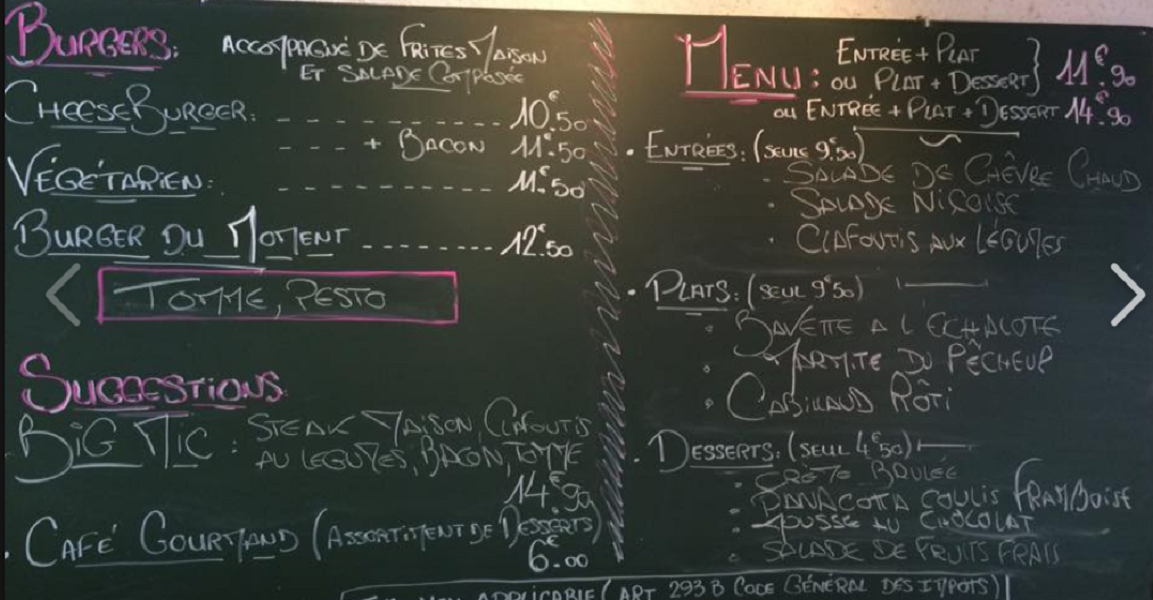 BURGERS:
ACCOMPAGNÉ DE FRITES MAISON
ET SALADE COMPOSÉE
CHEESEBURGER: - - - - - - - - - - - 10€.50
- - - + BACON 11€.50
VÉGÉTARIEN: - - - - - - - - - - 11€.50
BURGER DU MOMENT - - - - - - - - 12€.50
TOMME, PESTO
SUGGESTIONS:
BIG MIC : STEAK MAISON, CLAFOUTIS
AU LEGUMES, BACON, TOMME
14€.90
. CAFÉ GOURMAND (ASSORTIMENT DE DESSERTS)
6€.00
MENU: ENTRÉE + PLAT
OU PLAT + DESSERT } 11€.90
OU ENTRÉE + PLAT + DESSERT 14€.90
. ENTRÉES: (SEULE 9€50)
- SALADE DE CHÊVRE CHAUD
. SALADE NIÇOISE
. CLAFOUTIS AUX LÉGUMES
. PLATS: (SEUL 9€50)
. BAVETTE A L'ECHALOTE
. MARMITE DU PÊCHEUR
. CABILLAUD RÔTI
. DESSERTS: (SEUL 4€50)
. CRÈME BRULÉE
. PANACOTTA COULIS FRAMBOISE
. MOUSSE AU CHOCOLAT
. SALADE DE FRUITS FRAIS
APPLICABLE (ART 293 B CODE GÉNÉRAL DES IMPOTS)